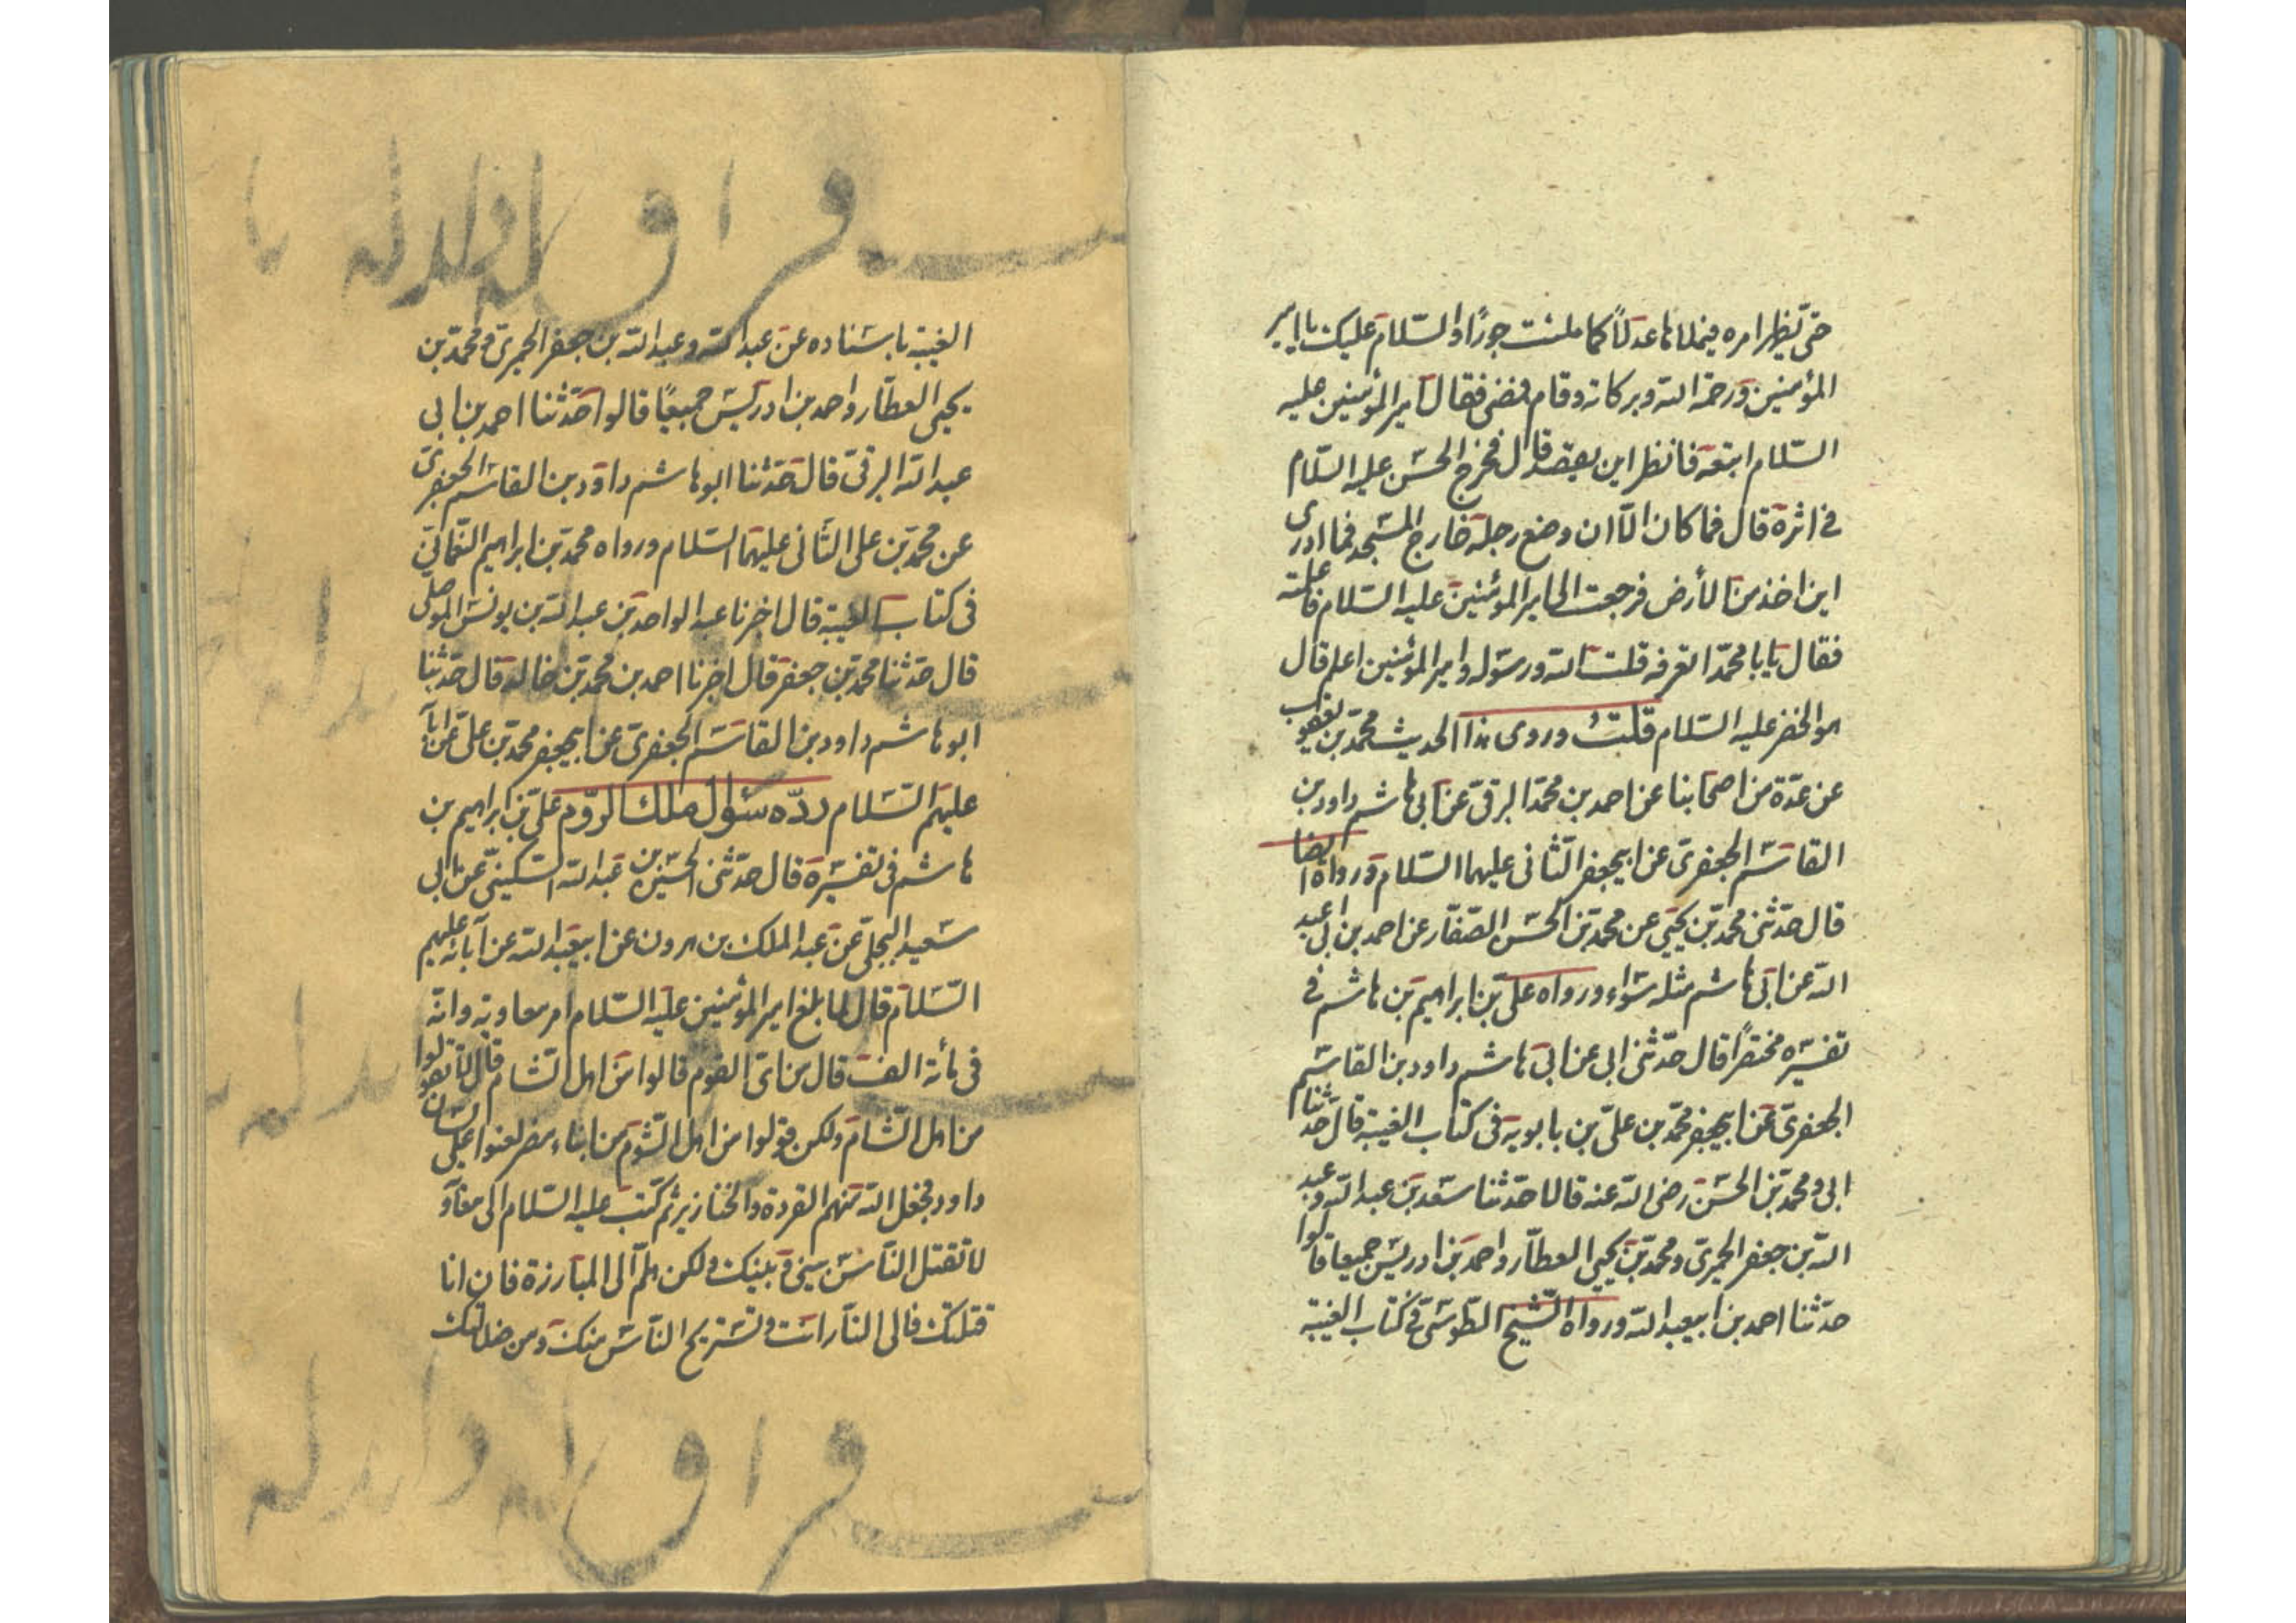 حتى يظهر امره فيملاها عدلاً كما ملئت جورًا والسّلام عليك يا امير
المؤمنين ورحمة الله وبركاته وقام فمضى فقال امير المؤمنين عليه
السّلام اتبعه فانظر اين يقصد قال فخرج الحسن عليه السّلام
في اثره قال فما كان الّا ان وضع رجله خارج المسجد فما ادرى
اين اخذ من الأرض فرجعت الى امير المؤمنين عليه السّلام فاعلمته
فقال يا با محمّد اتعرفه قلت الله ورسوله وامير المؤمنين اعلم قال
هو الخضر عليه السّلام قلت وروى هذا الحديث محمّد بن يعقوب
عن عدّة من اصحابنا عن احمد بن محمّد البرقىّ عن ابى هاشم داود بن
القاسم الجعفرىّ عن ابيجعفر الثّانى عليهما السّلام ورواه ايضا
قال حدّثنى محمّد بن يحيى عن محمّد بن الحسن الصّفّار عن احمد بن ابى عبد
الله عن ابى هاشم مثله سواء ورواه علىّ بن ابراهيم بن هاشم فى
تفسيره مختصرًا قال حدّثنى ابى عن ابى هاشم داود بن القاسم
الجعفرىّ عن ابيجعفر محمّد بن علىّ بن بابويه فى كتاب الغيبة قال حدّثنا
ابى ومحمّد بن الحسن رضى الله عنه قالا حدّثنا سعد بن عبد الله وعبد
الله بن جعفر الحميرىّ ومحمّد بن يحيى العطّار واحمد بن ادريس جميعا قالوا
حدّثنا احمد بن ابيعبد الله ورواه الشّيخ الطّوسىّ فى كتاب الغيبة
الغيبة باسناده عن عبد الله وعبد الله بن جعفر الحميرىّ ومحمّد بن
يحيى العطّار واحمد بن ادريس جميعًا قالوا حدّثنا احمد بن ابى
عبد الله البرقىّ قال حدّثنا ابو هاشم داود بن القاسم الجعفرىّ
عن محمّد بن على الثّانى عليهما السّلام ورواه محمّد بن ابراهيم النّعمانىّ
فى كتاب الغيبة قال اخبرنا عبد الواحد بن عبد الله بن يونس الموصلى
قال حدّثنا محمّد بن جعفر قال اخبرنا احمد بن محمّد بن خالد قال حدّثنا
ابو هاشم داود بن القاسم الجعفرىّ عن ابيجعفر محمّد بن علىّ عن آبائه
عليهم السّلام ردّه سؤال ملك الرّوم علىّ بن ابراهيم بن
هاشم فى تفسيره قال حدّثنى الحسين بن عبد الله السّكينىّ عن ابى
سعيد البجلىّ عن عبد الملك بن هرون عن ابيعبد الله عن آبائه عليهم
السّلام قال لما بلغ امير المؤمنين عليه السّلام امر معاوية وانّه
فى مائة الف قال من اىّ القوم قالوا من اهل الشّام قال لا تقولوا
من اهل الشّام ولكن قولوا من اهل الشّوم من ابناء مضر لعنوا على لسان
داود فجعل الله منهم القردة والخنازير ثم كتب عليه السّلام الى معاو
لا تقتل النّاس بينى وبينك ولكن هلمّ الى المبارزة فان انا
قتلتك فالى النّار انت وتستريح النّاس منك ومن ضلالتك